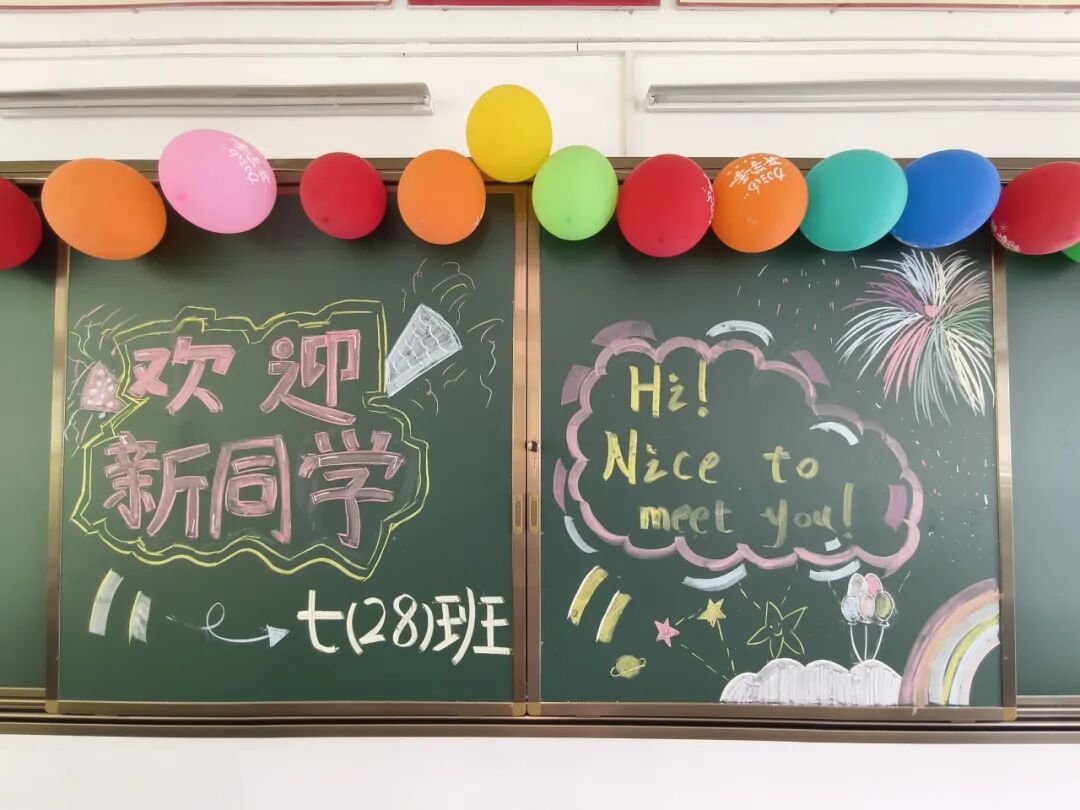 欢迎
新同学
七(28)班
Hi!
Nice to
meet you!